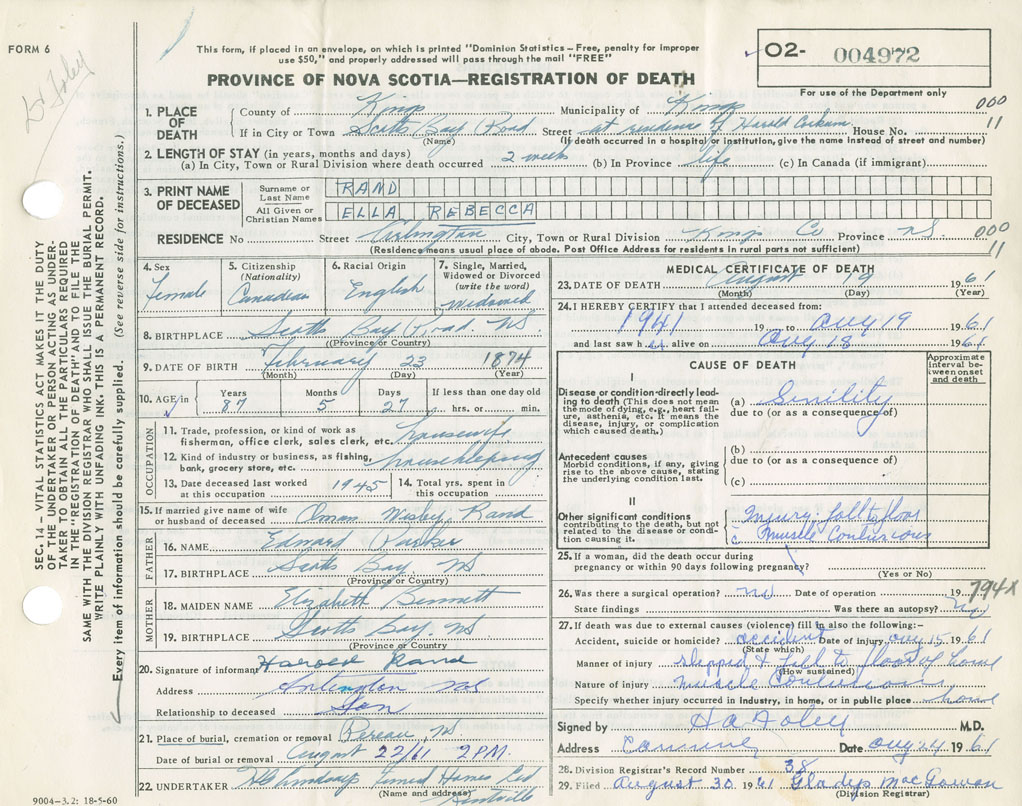 FORM 6
Dr Foley
This form, if placed in an envelope, on which is printed "Dominion Statistics—Free, penalty for improper
use $50," and properly addressed will pass through the mail "FREE"
PROVINCE OF NOVA SCOTIA—REGISTRATION OF DEATH
O2- 004972
For use of the Department only
000
11
1. PLACE OF DEATH
County of Kings Municipality of Kings
If in City or Town Scotts Bay Road Street at residence of Harold House No.
(Name) (If death occurred in a hospital or institution, give the name instead of street and number)
2. LENGTH OF STAY (in years, months and days)
(a) In City, Town or Rural Division where death occurred 2 weeks (b) In Province life (c) In Canada (if immigrant)
3. PRINT NAME OF DECEASED
Surname or Last Name RAND
All Given or Christian Names ELLA REBECCA
RESIDENCE No Street Arlington City, Town or Rural Division Kings Co Province NS
000
11
(Residence means usual place of abode. Post Office Address for residents in rural parts not sufficient)
4. Sex Female
5. Citizenship (Nationality) Canadian
6. Racial Origin English
7. Single, Married, Widowed or Divorced (write the word) Widowed
8. BIRTHPLACE Scotts Bay Road, NS.
(Province or Country)
9. DATE OF BIRTH February 23 1874
(Month) (Day) (Year)
10. AGE in Years 87 Months 5 Days 27 If less than one day old hrs. or min.
OCCUPATION
11. Trade, profession, or kind of work as fisherman, office clerk, sales clerk, etc. housewife
12. Kind of industry or business, as fishing, bank, grocery store, etc. housekeeping
13. Date deceased last worked at this occupation 1945
14. Total yrs. spent in this occupation
15. If married give name of wife or husband of deceased Wesley Rand
FATHER
16. NAME Edward
17. BIRTHPLACE Scotts Bay NS
(Province or Country)
MOTHER
18. MAIDEN NAME Elizabeth Bennett
19. BIRTHPLACE Scotts Bay, NS
(Province or Country)
20. Signature of informant Harold Rand
Address Arlington NS
Relationship to deceased Son
21. Place of burial, cremation or removal Pereau, NS
Date of burial or removal August 22/61 2 P.M.
22. UNDERTAKER Funeral Homes Ltd
(Name and address) Kentville
9004-3.2: 18-5-60
MEDICAL CERTIFICATE OF DEATH
23. DATE OF DEATH August 19 1961
(Month) (Day) (Year)
24. I HEREBY CERTIFY that I attended deceased from:
1941 19 to Aug 19 1961
and last saw her alive on Aug 18 1961
CAUSE OF DEATH
Approximate interval between onset and death
I
Disease or condition directly leading to death (This does not mean the mode of dying, e.g., heart failure, asthenia, etc. It means the disease, injury, or complication which caused death.)
(a) Senility
due to (or as a consequence of)
Antecedent causes
Morbid conditions, if any, giving rise to the above cause, stating the underlying condition last.
(b)
due to (or as a consequence of)
(c)
II
Other significant conditions
contributing to the death, but not related to the disease or condition causing it.
Injury: fall to floor
c muscle Contusions
25. If a woman, did the death occur during
pregnancy or within 90 days following pregnancy?
(Yes or No)
26. Was there a surgical operation? no Date of operation 19
State findings Was there an autopsy? no
794X
27. If death was due to external causes (violence) fill in also the following:—
Accident, suicide or homicide? accident Date of injury Aug 15 1961
(State which)
Manner of injury slipped & fell to floor of home
(How sustained)
Nature of injury muscle Contusions
Specify whether injury occurred in industry, in home, or in public place home
Signed by H a Foley M.D.
Address Canning Date Aug 24 1961
28. Division Registrar's Record Number 38
29. Filed August 30 1961 Gladys MacGowan
(Division Registrar)
SEC. 14—VITAL STATISTICS ACT MAKES IT THE DUTY
OF THE UNDERTAKER OR PERSON ACTING AS UNDER-
TAKER TO OBTAIN ALL THE PARTICULARS REQUIRED
IN THE "REGISTRATION OF DEATH" AND TO FILE THE
SAME WITH THE DIVISION REGISTRAR WHO SHALL ISSUE THE BURIAL PERMIT.
WRITE PLAINLY WITH UNFADING INK. THIS IS A PERMANENT RECORD.
Every item of information should be carefully supplied. (See reverse side for instructions.)